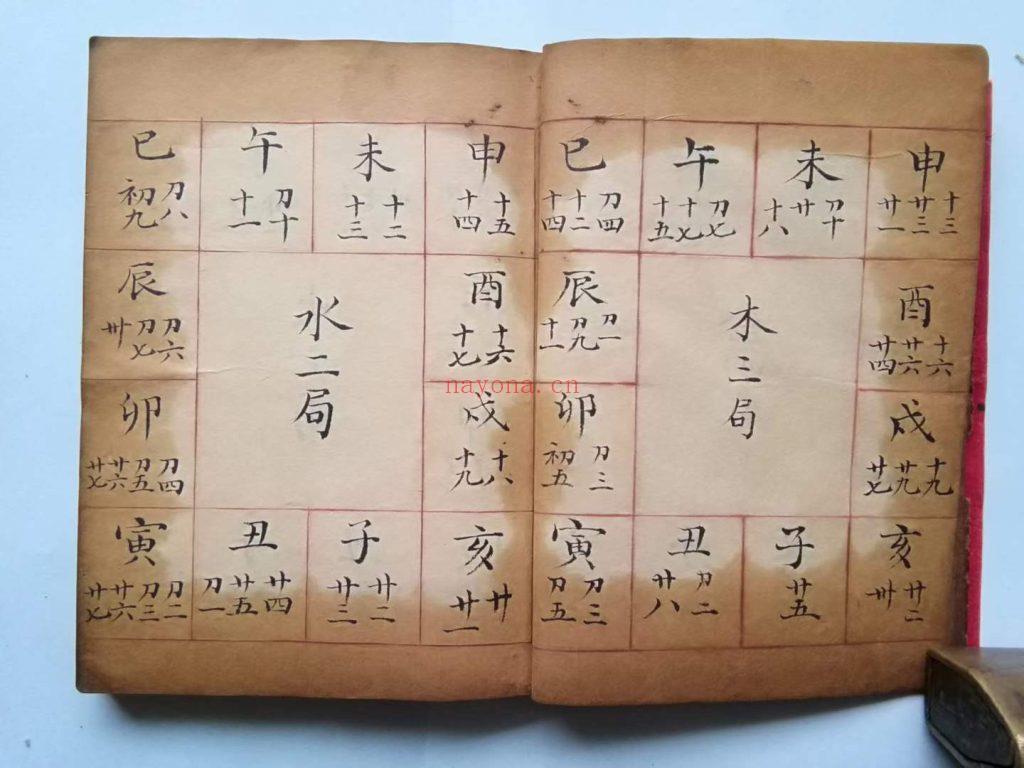 巳
刀八
初九
午
刀十
十一
未
十二
十三
申
十五
十四
辰
刀六
刀七
卅
水二局
酉
十六
十七
卯
刀四
刀五
廿六
廿七
戌
十八
十九
寅
刀二
刀三
廿六
廿七
丑
廿四
廿五
刀一
子
廿二
廿三
亥
廿
廿一
巳
刀四
十二
十四
午
刀七
十七
十五
未
刀十
廿
十八
申
十三
廿三
廿一
辰
刀一
刀九
十一
木三局
酉
十六
廿六
廿四
卯
刀三
初五
戌
十九
廿九
廿七
寅
刀三
刀五
丑
刀二
廿八
子
廿五
亥
廿二
卅
nayona.cn